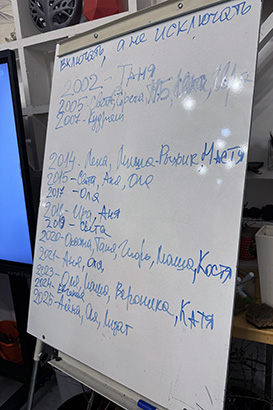 включать, а не исключать
2002 - Таня
2005 - Света,
2007 - Кудрат
2014 - Лена, Миша-Рюрик, МАТЯ
2015 - Света, Аня, Оля
2017 - Оля
Ира, Аня
2019 - Света
2020 - Оксана, Таня, Игорь, Маша, Костя
2021 - Аня, Оля
2023 - Оля, Маша, Вероника, КАТЯ
2024 - Евгения
2025 - Алёна, Оля,